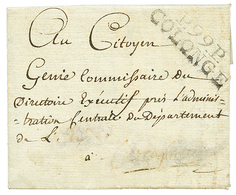 Au Citoyen
P.99.P
COLONGE
Genie Commissaire du
Directoire Exécutif près L'adminis-
tration Centrale du Département
de L'
à